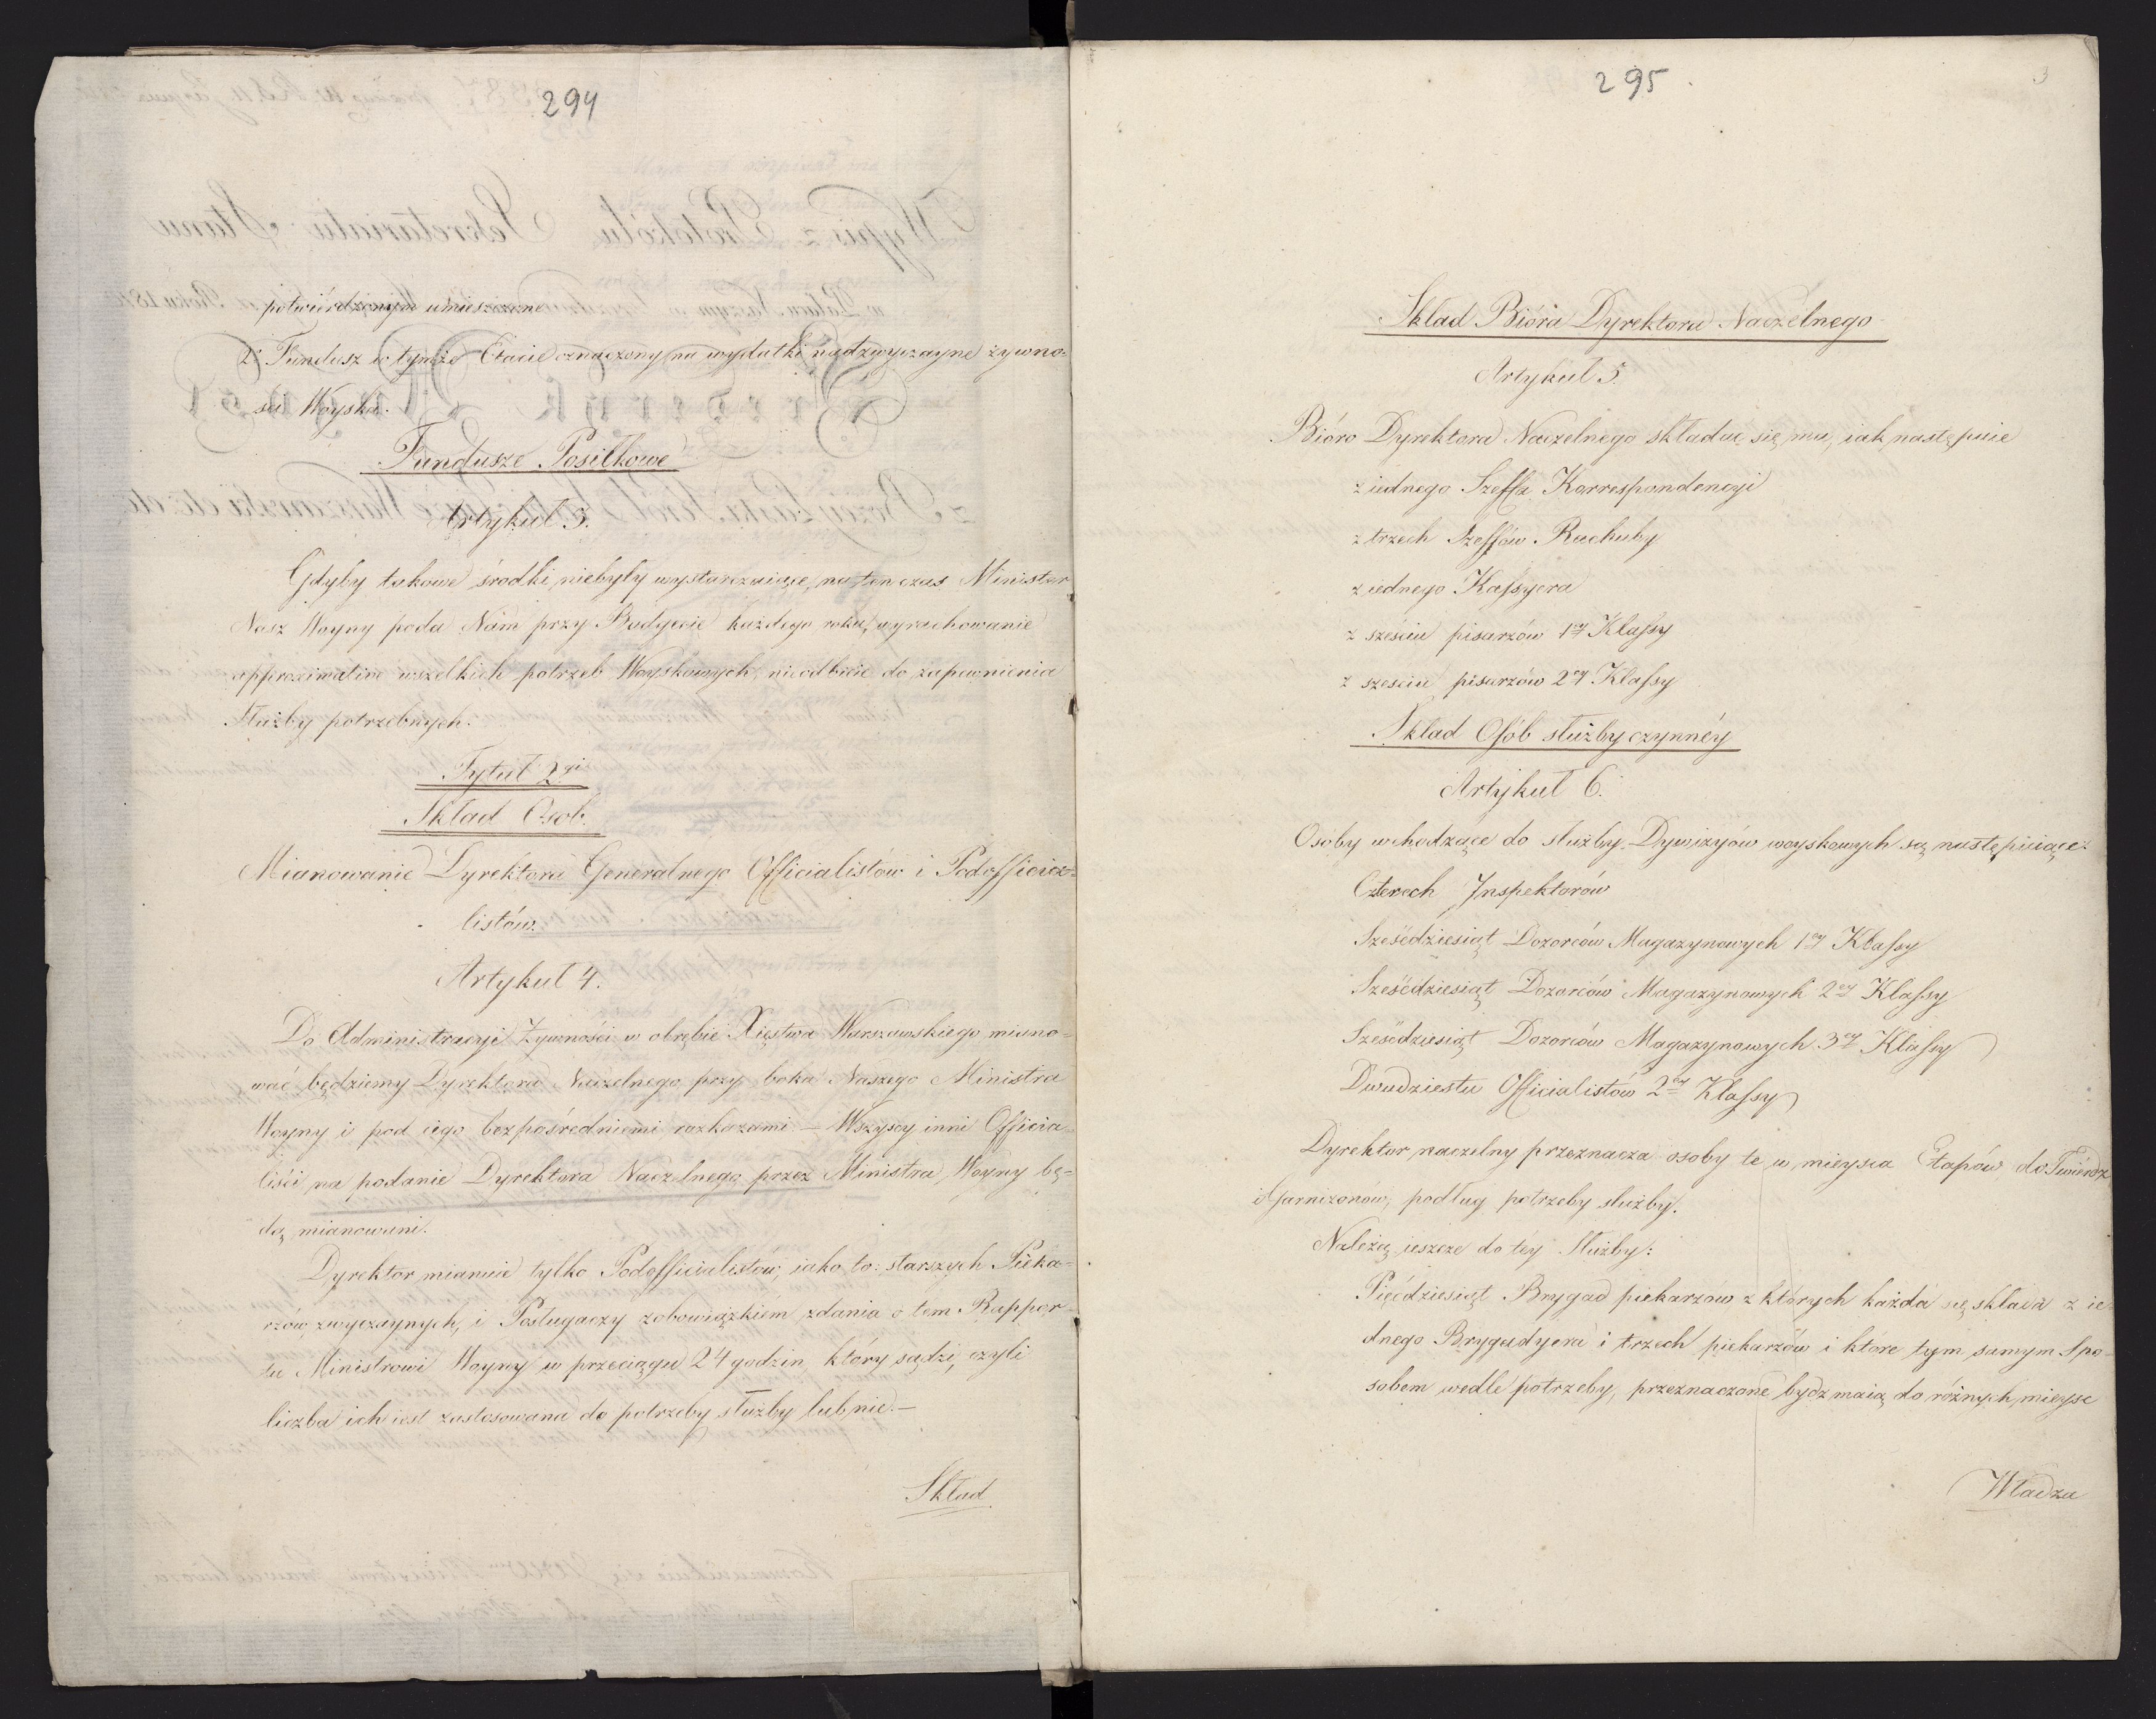 294
potwierdzonym umieszczone
2° Fundusz w tymże Etacie oznaczony na wydatki nadzwyczayne żywno=
sci Woyska.
Fundusze Posiłkowe
Artykuł 3.
Gdyby takowe środki niebyły wystarczaiące, na ten czas Minister
Nasz Woyny poda Nam przy Budgecie każdego roku, wyrachowanie
approximative wszelkich potrzeb Woyskowych, nieodbicie do zapewnienia
Służby potrzebnych.
Tytuł 2gi
Skład Osob.
Mianowanie Dyrektora Generalnego Officialistów i Podofficia=
listów.
Artykuł 4.
Do Administracyi Żywności w obrębie Xięstwa Warszawskiego miano=
wać będziemy Dyrektora Naczelnego przy boku Naszego Ministra
Woyny i pod iego bezpośredniemi rozkazami — Wszyscy inni Officia=
liści na podanie Dyrektora Naczelnego przez Ministra Woyny bę=
dą mianowani.
Dyrektor mianuie tylko Podofficialistów, iako to: starszych Pieka=
rzów, zwyczaynych, i Posługaczy z obowiązkiem zdania o tem Rappor=
tu Ministrowi Woyny w przeciągu 24 godzin, który sądzi, czyli
liczba ich iest zastosowana do potrzeby służby lub nie.—
Skład
295.
3
Skład Bióra Dyrektora Naczelnego
Artykuł 5.
Bióro Dyrektora Naczelnego składać się ma, iak następuie
z iednego Szeffa Korrespondencyi
z trzech Szeffów Rachuby
z iednego Kassyera
z sześciu pisarzów 1ey Klassy
z sześciu pisarzów 2ey Klassy
Skład Osób służby czynnéy
Artykuł 6.
Osoby wchodzące do służby Dywizyów woyskowych są następuiące:
Czterech Inspektorów
Sześćdziesiąt Dozorców Magazynowych 1ey Klassy
Sześćdziesiąt Dozorców Magazynowych 2ey Klassy
Sześćdziesiąt Dozorców Magazynowych 3ey Klassy
Dwudziestu Officialistów 2ey Klassy
Dyrektor naczelny przeznacza osoby te w mieysca Etapów do Twierdz
i Garnizonów, podług potrzeby służby.
Należą ieszcze do téy Służby:
Pięćdziesiąt Brygad piekarzów z których każda się składa z ie=
dnego Brygadyera i trzech piekarzów i które tym samym spo=
sobem wedle potrzeby, przeznaczone bydź maią do różnych mieysc
Władza